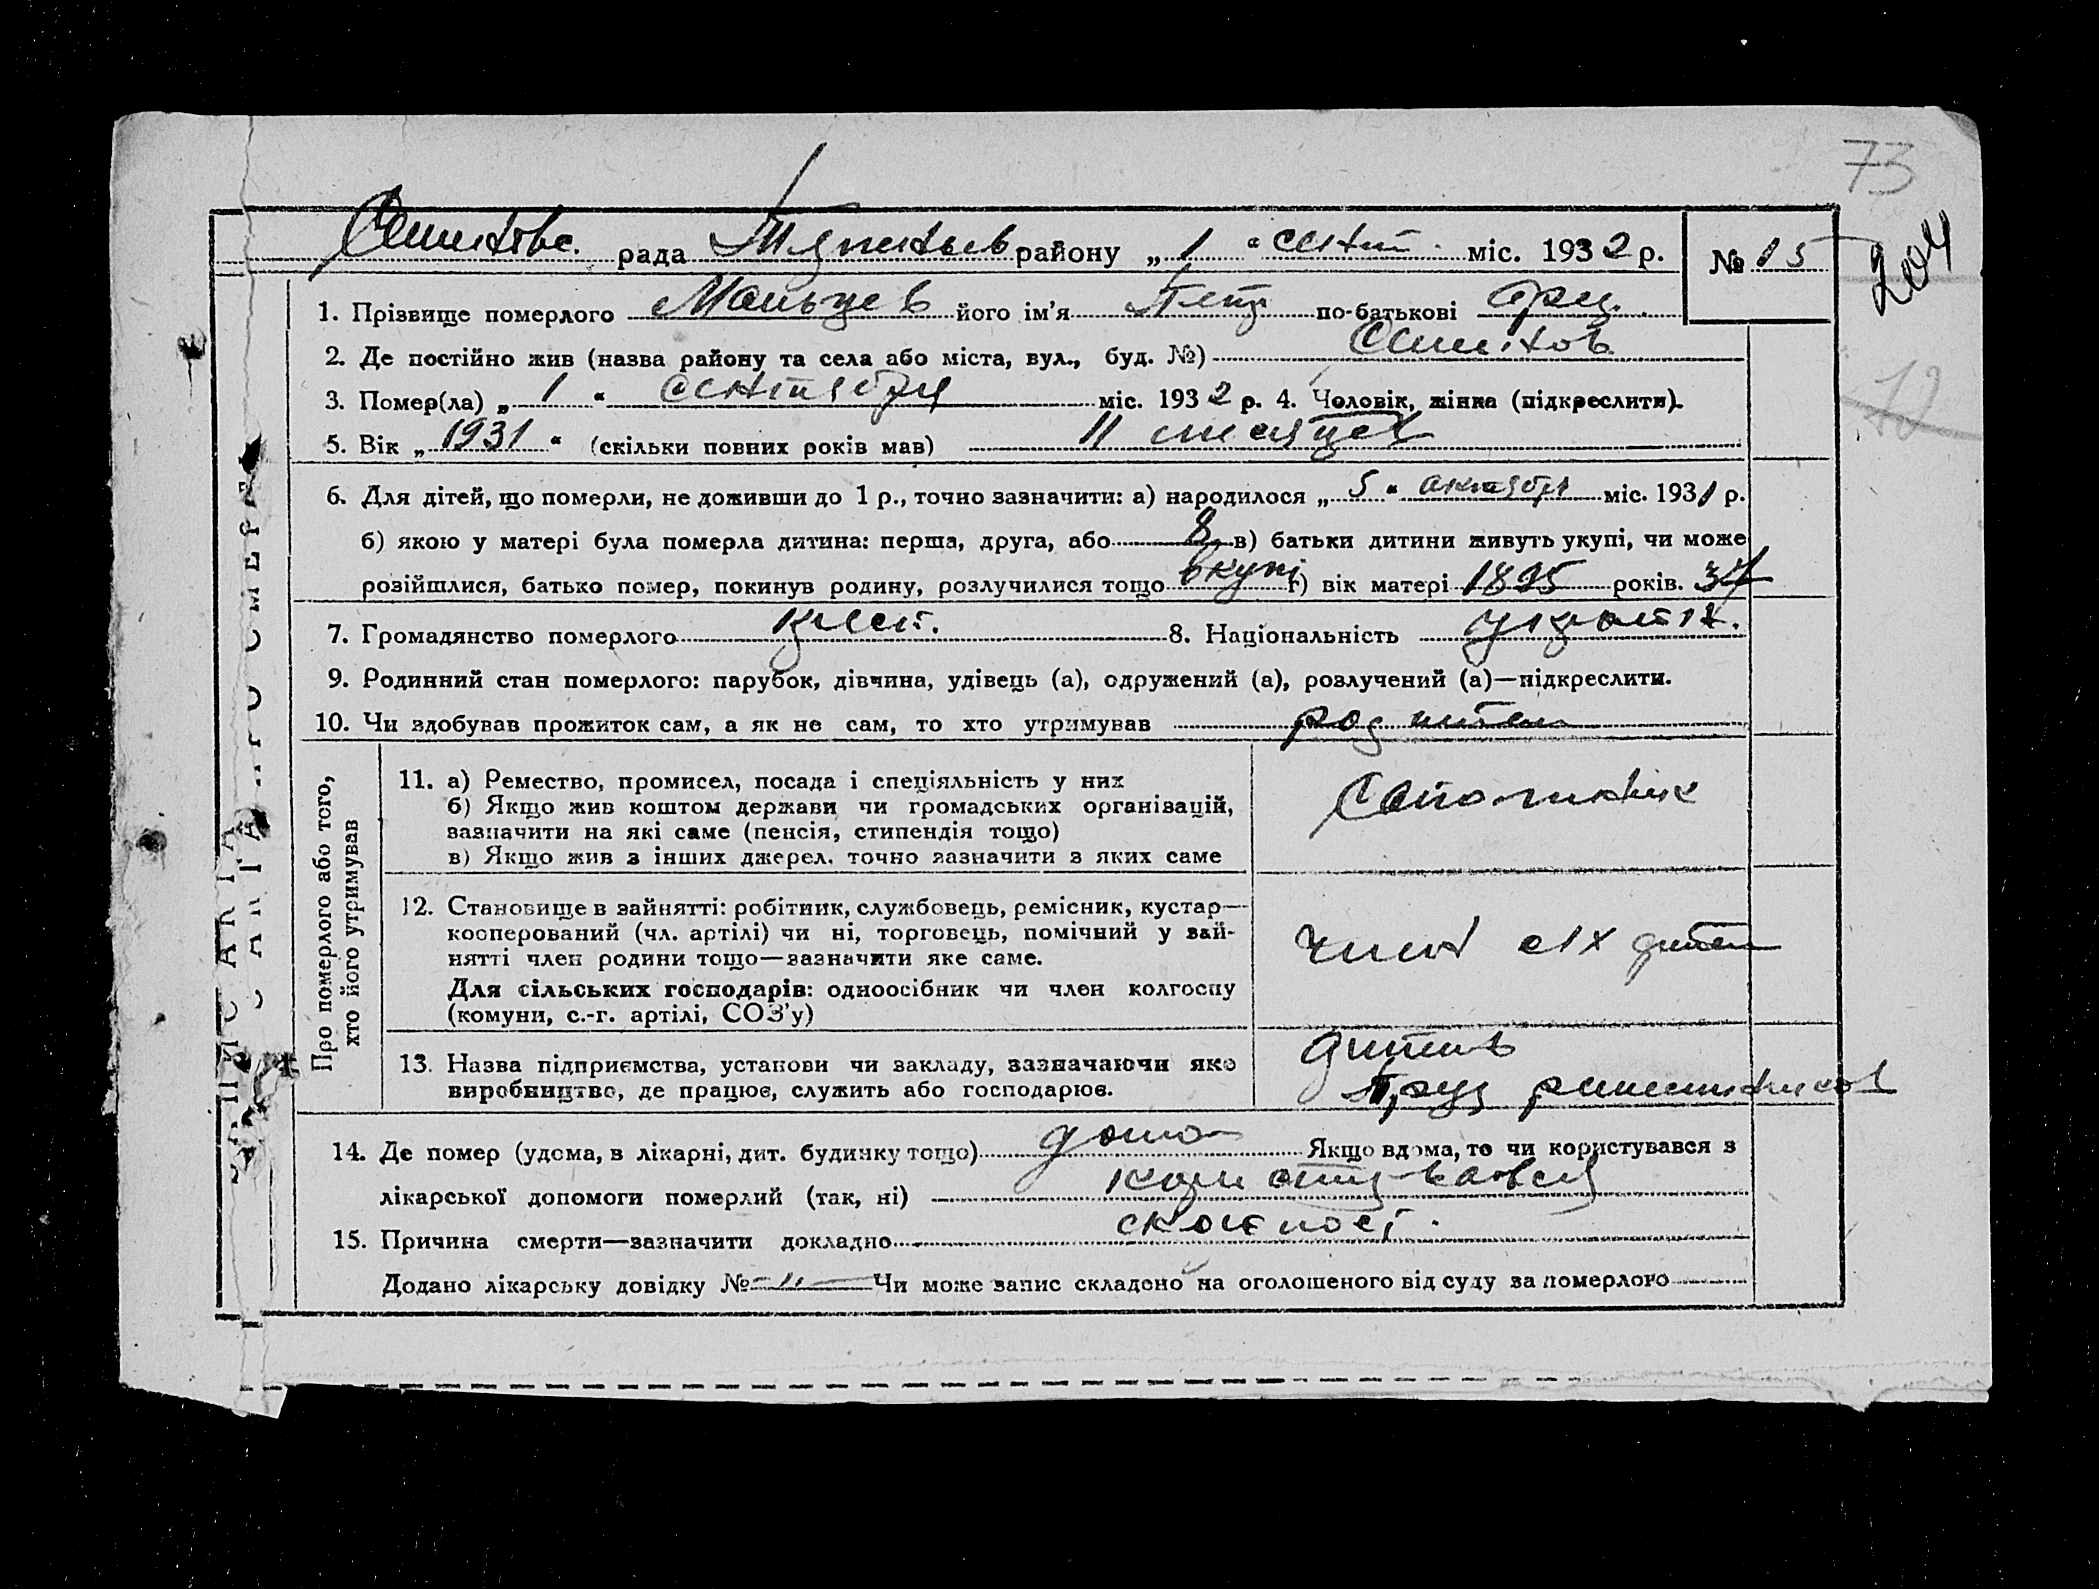 73
204
рада району „ 1 “ сент. міс. 1932 р. № 15
1. Прізвище померлого Мальцев його ім’я Петр по-батькові
2. Де постійно жив (назва району та села або міста, вул., буд. №)
3. Помер(ла) „ 1 “ сентября міс. 1932 р. 4. Чоловік, жінка (підкреслити).
12
5. Вік „ 1931 “ (скільки повних років мав) 11 месяцев
6. Для дітей, що померли, не доживши до 1 р., точно зазначити: а) народилося „ 5 “ октября міс. 1931 р.
б) якою у матері була померла дитина: перша, друга, або 8 в) батьки дитини живуть укупі, чи може
розійшлися, батько помер, покинув родину, розлучилися тощо вкупі г) вік матері 1895 років. 37
7. Громадянство померлого 8. Національність
9. Родинний стан померлого: парубок, дівчина, удівець (а), одружений (а), розлучений (а)—підкреслити.
10. Чи здобував прожиток сам, а як не сам, то хто утримував
ЗАПИС АКТА ПРО СМЕРТЬ
Про померлого або того,
хто його утримував
11. а) Ремество, промисел, посада і спеціяльність у них
б) Якщо жив коштом держави чи громадських організацій,
зазначити на які саме (пенсія, стипендія тощо)
в) Якщо жив з інших джерел, точно зазначити з яких саме
12. Становище в зайнятті: робітник, службовець, ремісник, кустар—
кооперований (чл. артілі) чи ні, торговець, помічний у зай-
нятті член родини тощо—зазначити яке саме.
Для сільських господарів: одноосібник чи член колгоспу
(комуни, с.-г. артілі, СОЗ’у)
13. Назва підприємства, установи чи закладу, зазначаючи яке
виробництво, де працює, служить або господарює.
14. Де помер (удома, в лікарні, дит. будинку тощо) дома Якщо вдома, то чи користувався з
лікарської допомоги померлий (так, ні) користувався
15. Причина смерти—зазначити докладно
Додано лікарську довідку № — „ — Чи може запис складено на оголошеного від суду за померлого